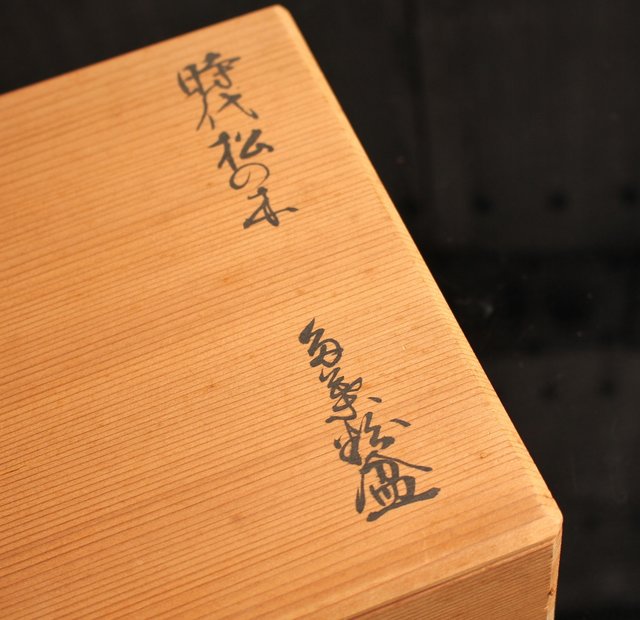 時代松の木 多葉粉盆